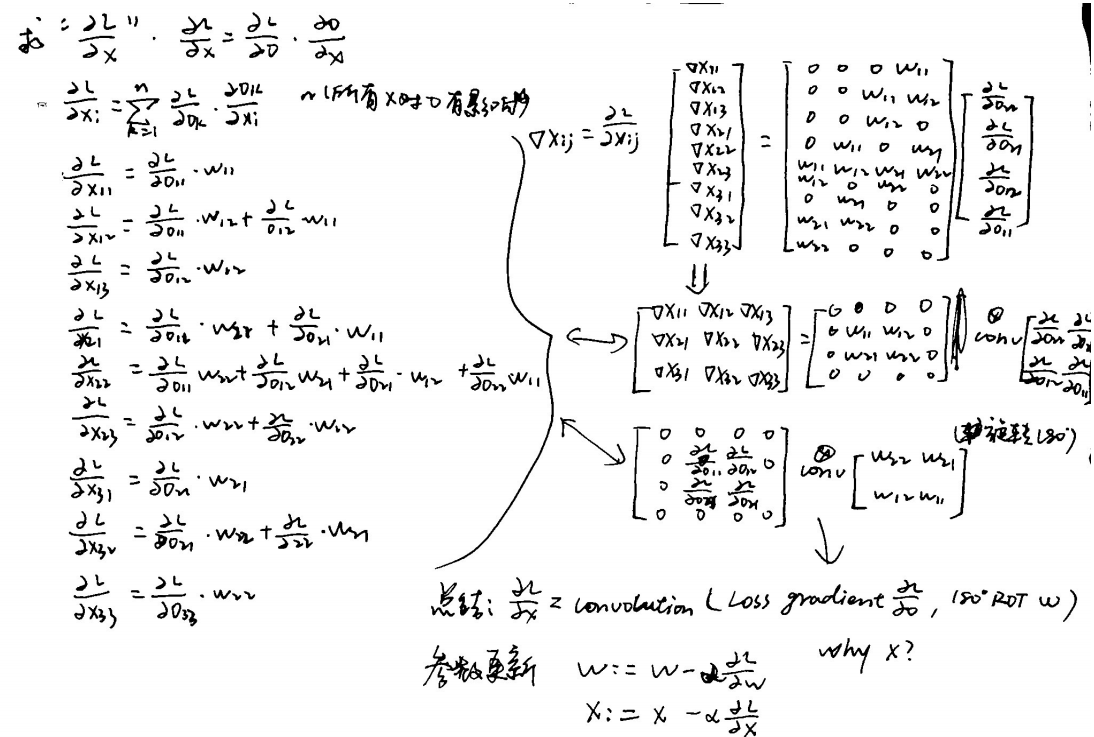 求 "∂L/∂X" . ∂L/∂X = ∂L/∂O · ∂O/∂X
∂L/∂Xi = Σ_{k=1}^{n} ∂L/∂Ok · ∂Ok/∂Xi
∂L/∂X11 = ∂L/∂O11 · W11
∂L/∂X12 = ∂L/∂O11 · W12 + ∂L/O12 W11
∂L/∂X13 = ∂L/∂O12 · W12
∂L/∂X21 = ∂L/∂O11 · W21 + ∂L/∂O21 · W11
∂L/∂X22 = ∂L/∂O11 W22 + ∂L/∂O12 W21 + ∂L/∂O21 · W12 + ∂L/∂O22 W11
∂L/∂X23 = ∂L/∂O12 · W22 + ∂L/∂O22 · W12
∂L/∂X31 = ∂L/∂O21 · W21
∂L/∂X32 = ∂L/∂O21 · W22 + ∂L/∂22 · W21
∂L/∂X33 = ∂L/∂O33 · W22
∇Xij = ∂L/∂Xij
∇X11
∇X12
∇X13
∇X21
∇X22
∇X23
∇X31
∇X32
∇X33
=
0 0 0 W11
0 0 W11 W12
0 0 W12 0
0 W11 0 W21
W11 W12 W21 W22
W12 0 W22 0
0 W21 0 0
W21 W22 0 0
W22 0 0 0
∂L/∂O22
∂L/∂O21
∂L/∂O12
∂L/∂O11
⇓
∇X11 ∇X12 ∇X13
∇X21 ∇X22 ∇X23
∇X31 ∇X32 ∇X33
=
0 0 0 0
0 W11 W12 0
0 W21 W22 0
0 0 0 0
conv
∂L/∂O22 ∂L/∂O21
∂L/∂O12 ∂L/∂O11
(旋转180°)
0 0 0 0
0 ∂L/∂O11 ∂L/∂O12 0
0 ∂L/∂O21 ∂L/∂O22 0
0 0 0 0
conv
W22 W21
W12 W11
总结: ∂L/∂X = convolution (Loss gradient ∂L/∂O, 180° ROT W)
why X?
参数更新 W := W - α ∂L/∂W
X := X - α ∂L/∂X